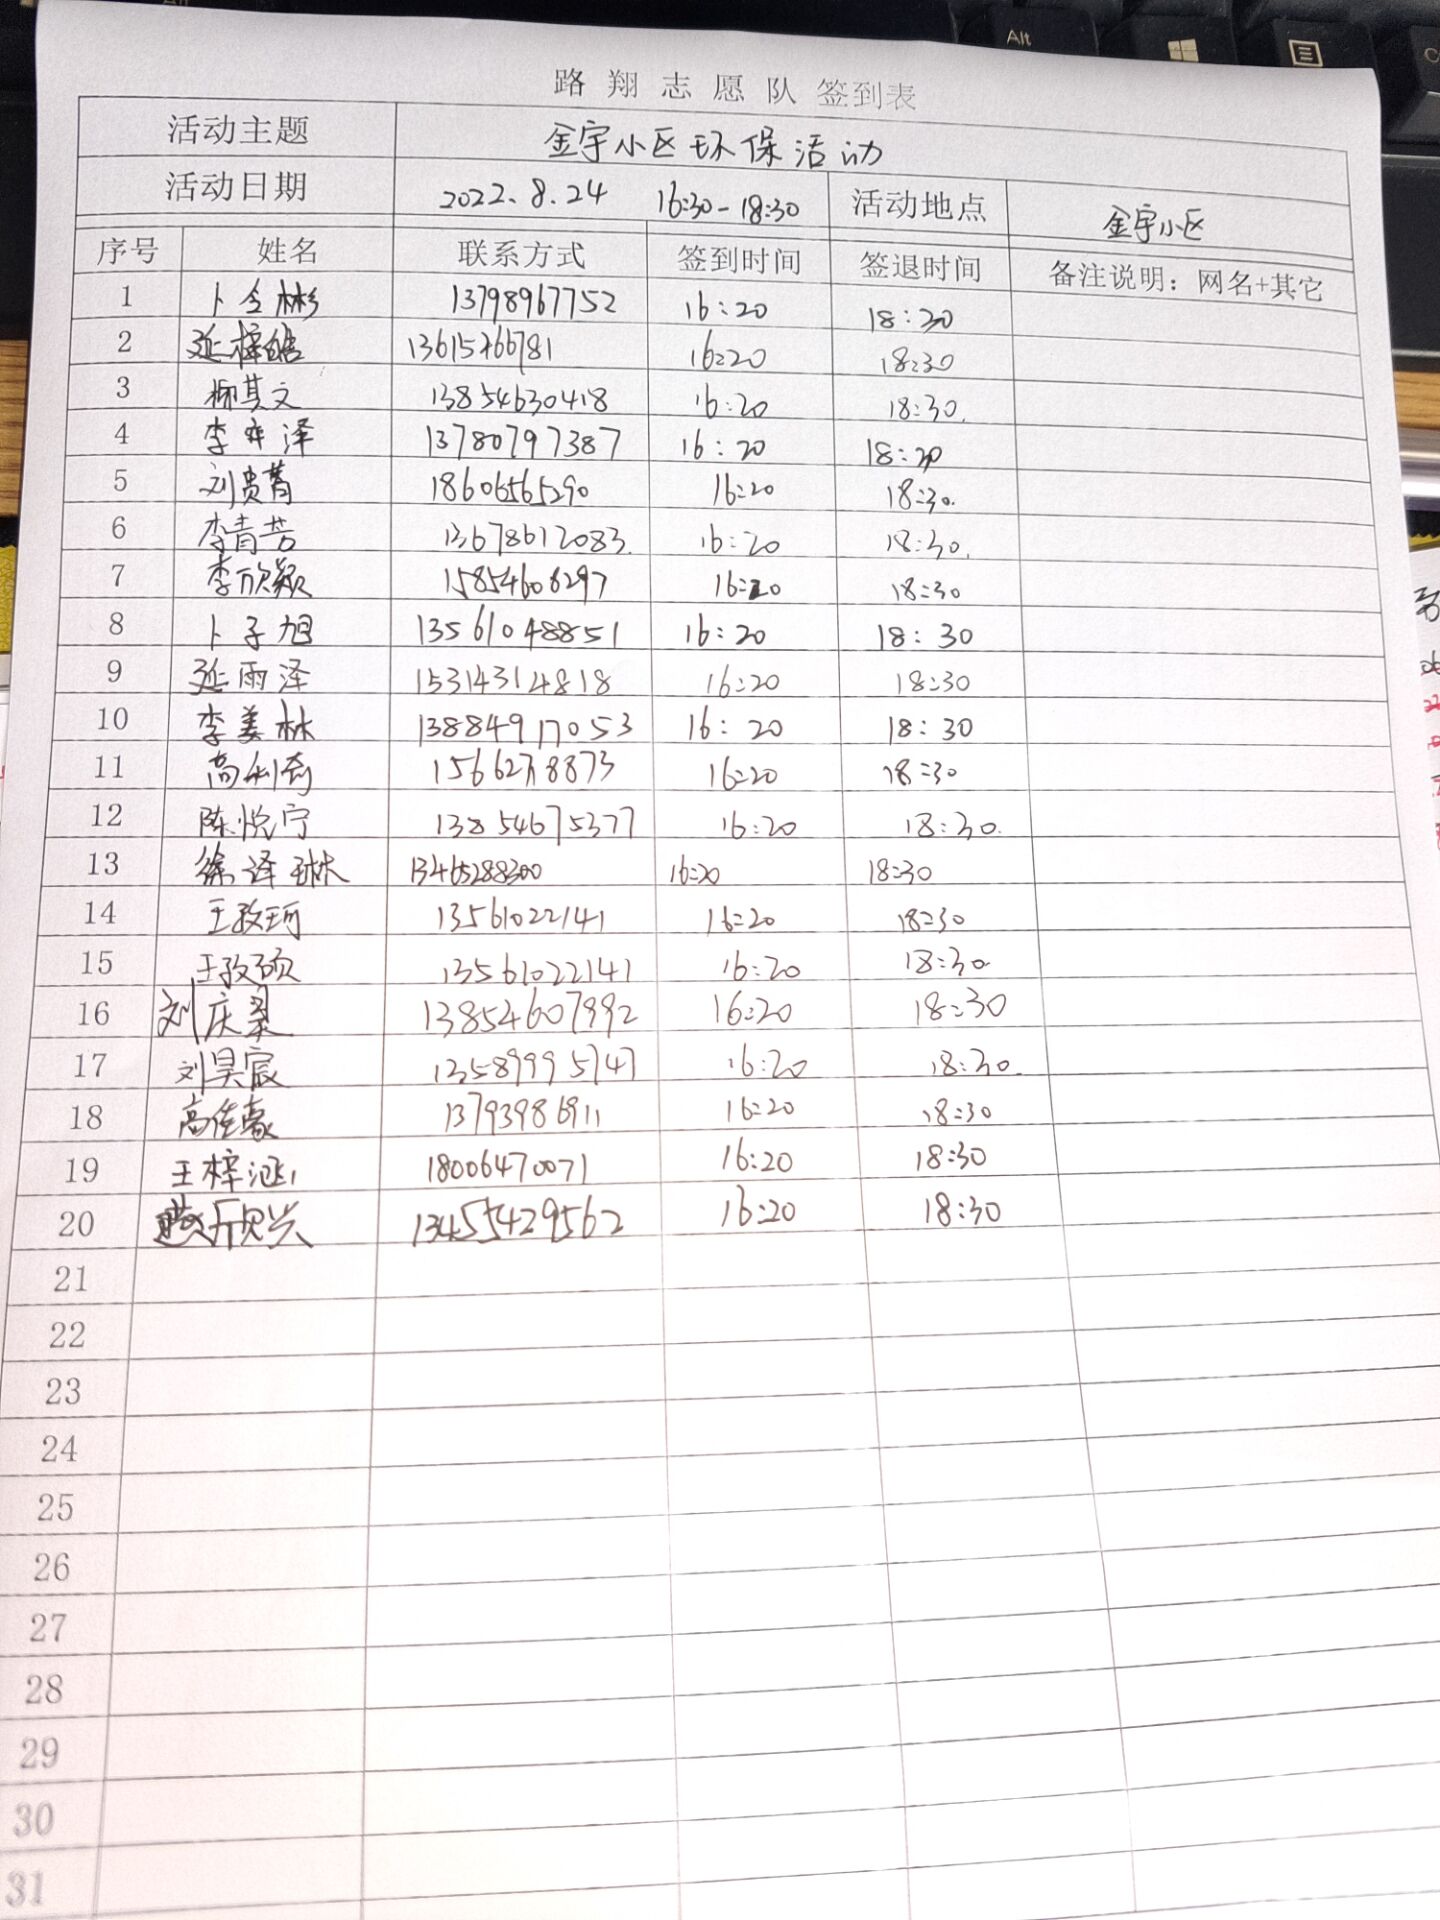 路翔志愿队签到表
活动主题 金宇小区环保活动
活动日期 2022.8.24 16:30-18:30 活动地点 金宇小区
序号 姓名 联系方式 签到时间 签退时间 备注说明：网名+其它
1 卜令彬 13798967752 16:20 18:30
2 延梓皓 13615466781 16:20 18:30
3 柳其文 13854630418 16:20 18:30
4 李奕泽 13780797387 16:20 18:20
5 刘贵菁 18606565290 16:20 18:30
6 李青芳 13678617083 16:20 18:30
7 李欣颖 15854608297 16:20 18:30
8 卜子旭 13561048851 16:20 18:30
9 延雨泽 15314314818 16:20 18:30
10 李美林 13884917053 16:20 18:30
11 高利 16:20 18:30
12 陈悦宁 13854675377 16:20 18:30
13 徐泽琳 13465288300 16:20 18:30
14 王孜珂 13561022141 16:20 18:30
15 王孜硕 13561022141 16:20 18:30
16 刘庆 13854607992 16:20 18:30
17 刘昊宸 13589995747 16:20 18:30
18 高佳豪 13793986911 16:20 18:30
19 王梓涵 18006470071 16:20 18:30
20 13455429562 16:20 18:30
21
22
23
24
25
26
27
28
29
30
31
Alt